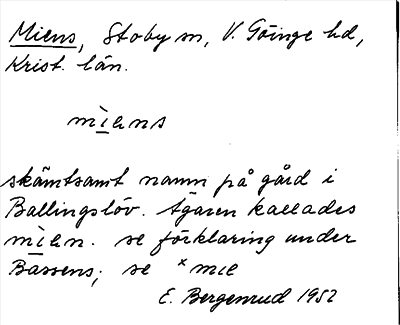 Miens, Stoby sn, V. Göinge hd,
Krist. län.
mìens
skämtsamt namn på gård i
Ballingslöv. Ägaren kallades
mìen. se förklaring under
Bassens; se ˣ mie
E. Bergenrud 1952